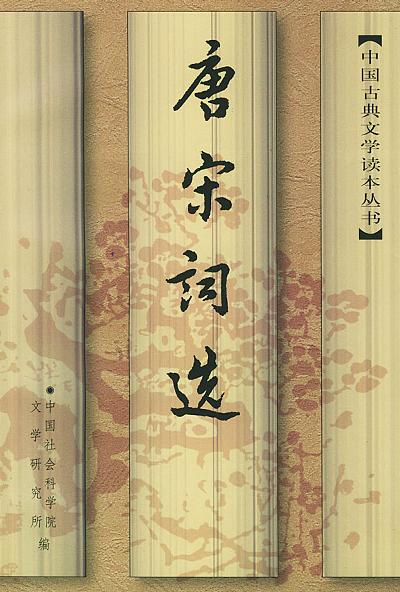 【中国古典文学读本丛书】
唐宋词选
◉中国社会科学院
文学研究所 编